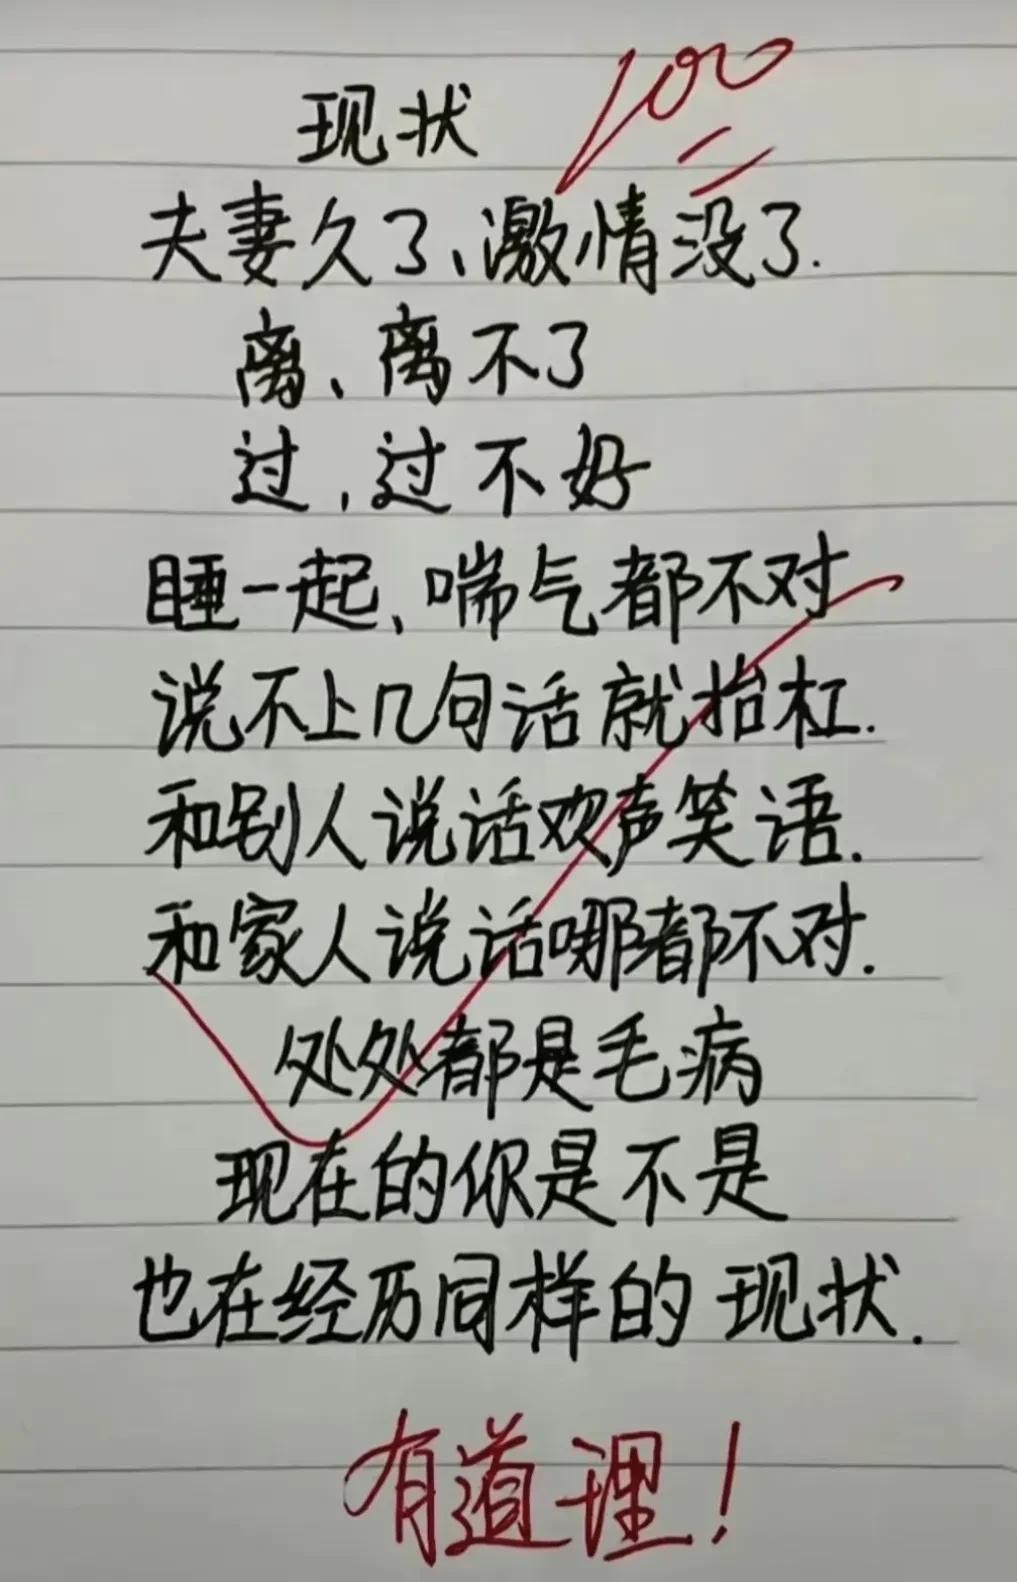 现状
100
夫妻久了、激情没了.
离、离不了
过,过不好
睡一起、喘气都不对
说不上几句话就抬杠.
和别人说话欢声笑语.
和家人说话哪都不对.
处处都是毛病
现在的你是不是
也在经历同样的现状.
有道理!